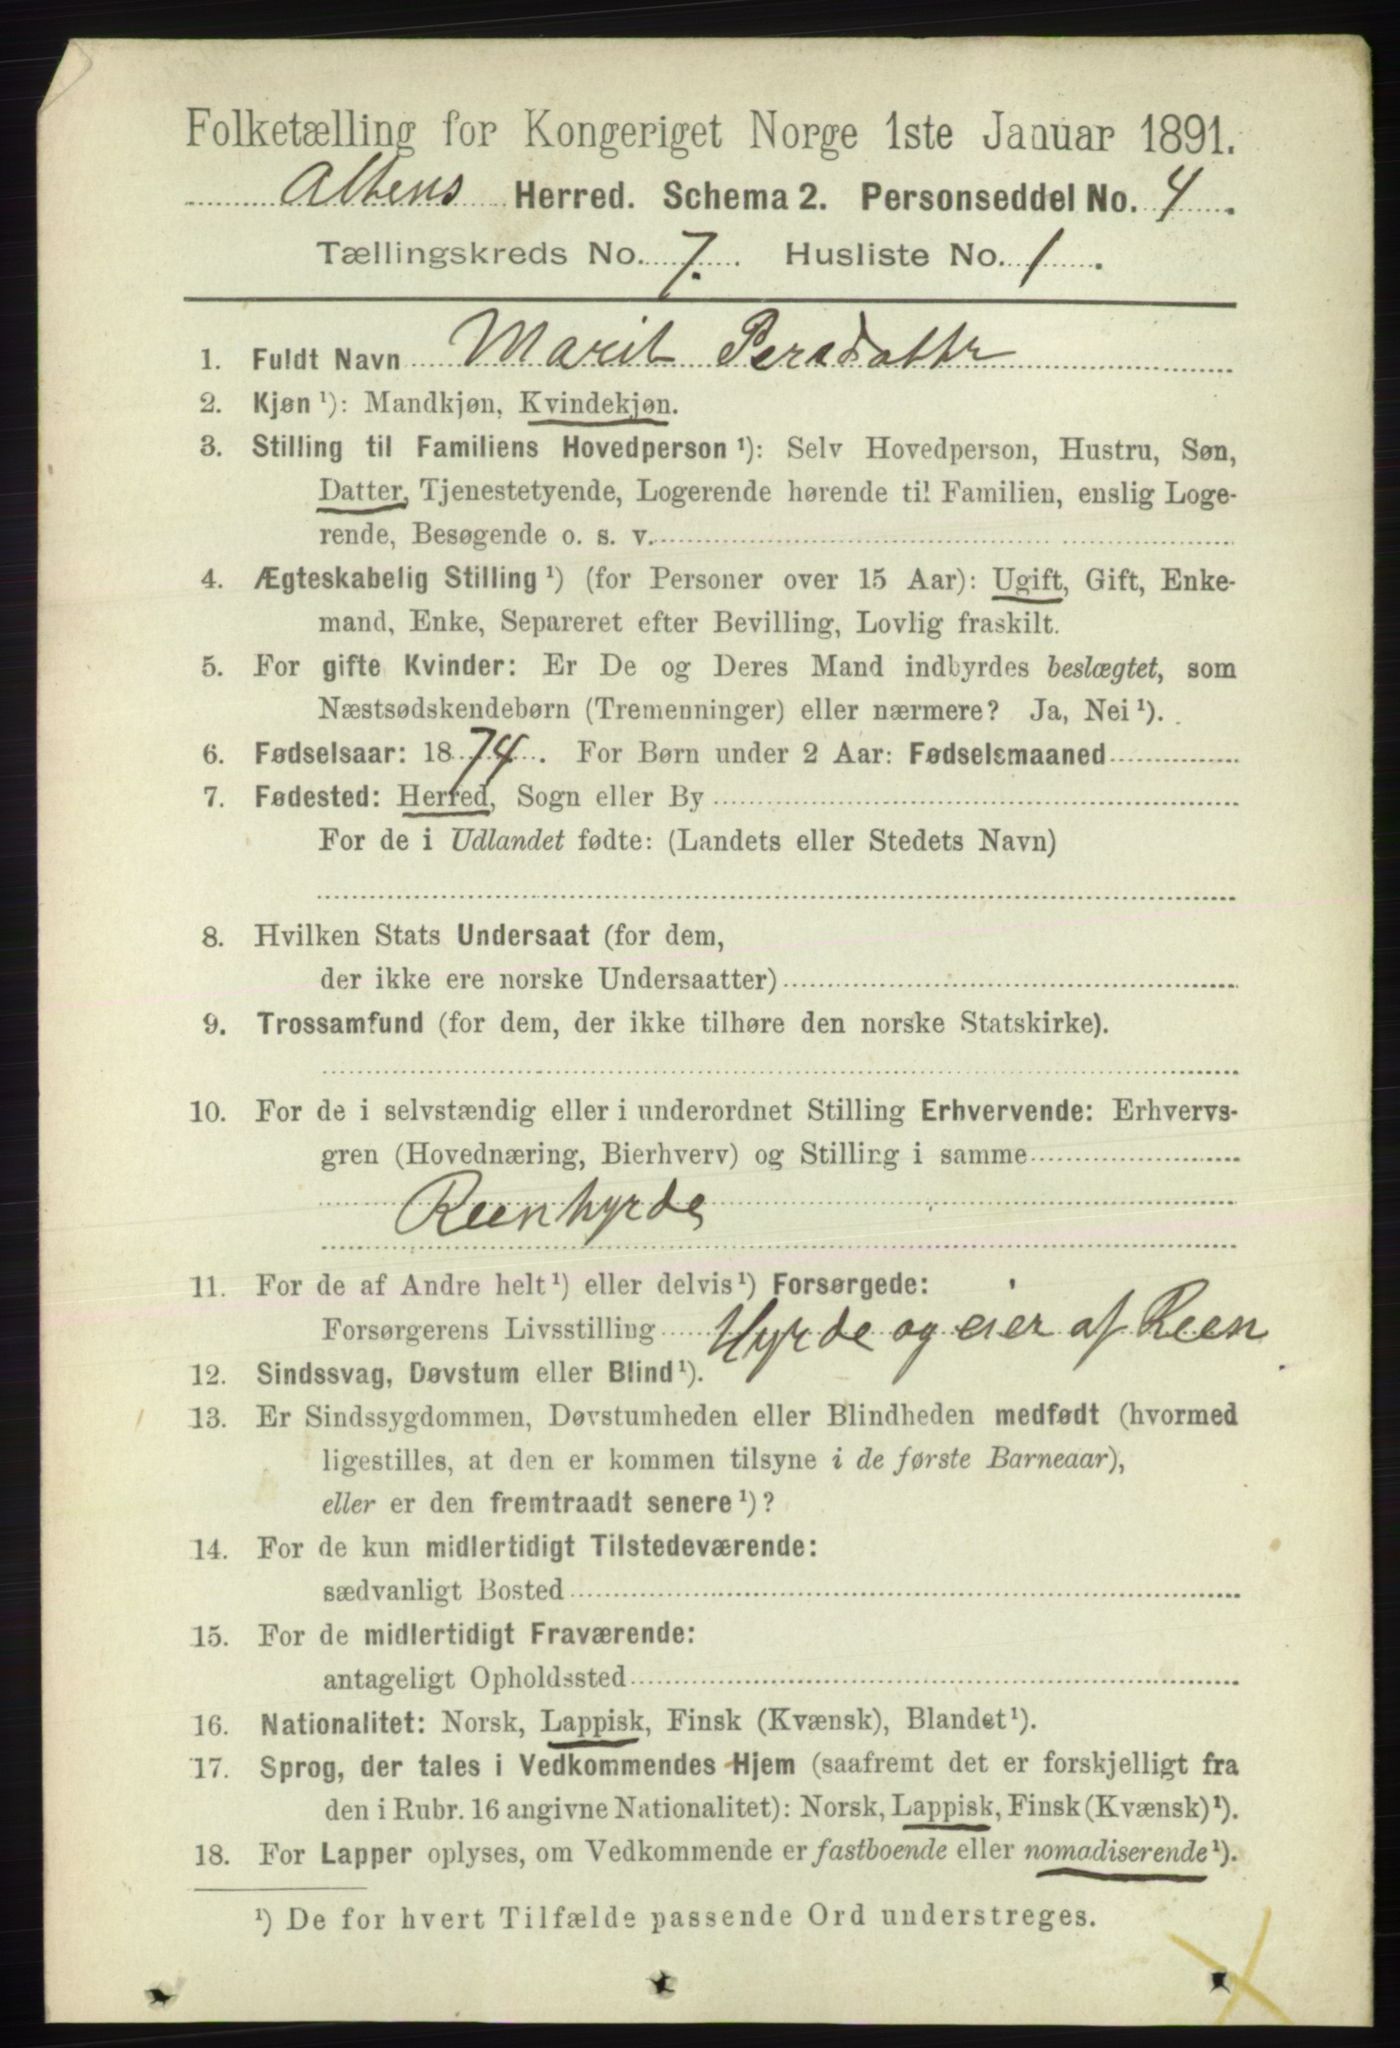 Folketælling for Kongeriget Norge 1ste Januar 1891.
Altens Herred. Schema 2. Personseddel No. 4.
Tællingskreds No. 7. Husliste No. 1.
1. Fuldt Navn Marit Persdattr
2. Kjøn ¹): Mandkjøn, Kvindekjøn.
3. Stilling til Familiens Hovedperson ¹): Selv Hovedperson, Hustru, Søn,
Datter, Tjenestetyende, Logerende hørende til Familien, enslig Loge-
rende, Besøgende o. s. v.
4. Ægteskabelig Stilling ¹) (for Personer over 15 Aar): Ugift, Gift, Enke-
mand, Enke, Separeret efter Bevilling, Lovlig fraskilt.
5. For gifte Kvinder: Er De og Deres Mand indbyrdes beslægtet, som
Næstsødskendebørn (Tremenninger) eller nærmere? Ja, Nei ¹).
6. Fødselsaar: 1874. For Børn under 2 Aar: Fødselsmaaned
7. Fødested: Herred, Sogn eller By
For de i Udlandet fødte: (Landets eller Stedets Navn)
8. Hvilken Stats Undersaat (for dem,
der ikke ere norske Undersaatter)
9. Trossamfund (for dem, der ikke tilhøre den norske Statskirke).
10. For de i selvstændig eller i underordnet Stilling Erhvervende: Erhvervs-
gren (Hovednæring, Bierhverv) og Stilling i samme
Reenhyrde
11. For de af Andre helt ¹) eller delvis ¹) Forsørgede:
Forsørgerens Livsstilling Hyrde og eier af Reen
12. Sindssvag, Døvstum eller Blind ¹).
13. Er Sindssygdommen, Døvstumheden eller Blindheden medfødt (hvormed
ligestilles, at den er kommen tilsyne i de første Barneaar),
eller er den fremtraadt senere ¹)?
14. For de kun midlertidigt Tilstedeværende:
sædvanligt Bosted
15. For de midlertidigt Fraværende:
antageligt Opholdssted
16. Nationalitet: Norsk, Lappisk, Finsk (Kvænsk), Blandet ¹).
17. Sprog, der tales i Vedkommendes Hjem (saafremt det er forskjelligt fra
den i Rubr. 16 angivne Nationalitet): Norsk, Lappisk, Finsk (Kvænsk) ¹).
18. For Lapper oplyses, om Vedkommende er fastboende eller nomadiserende ¹).
¹) De for hvert Tilfælde passende Ord understreges.